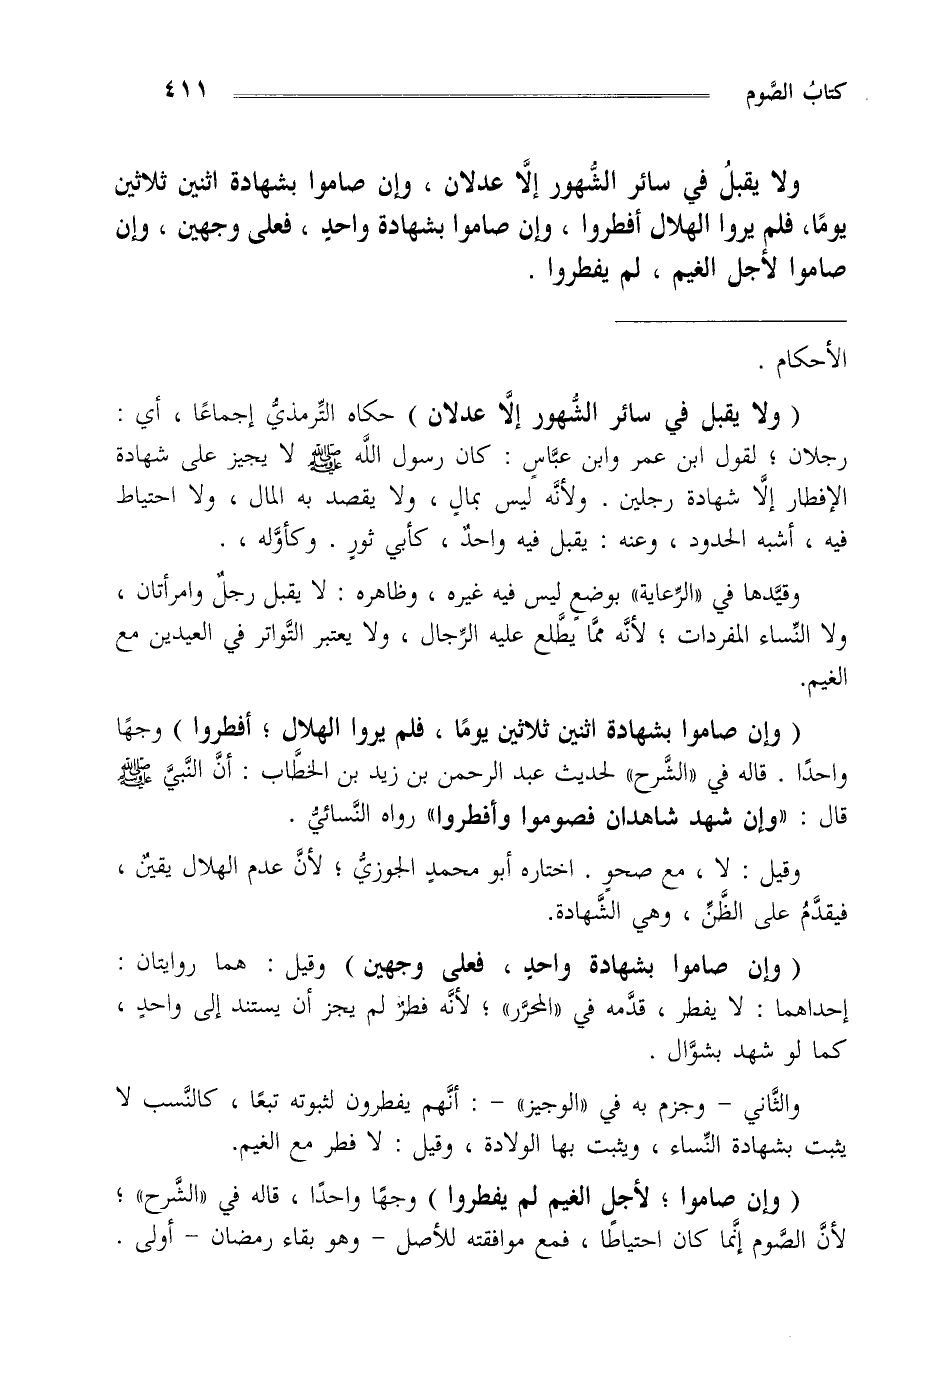 كتابُ الصَّوم ٤١١
ولا يقبلُ في سائر الشُّهور إلَّا عدلان ، وإن صاموا بشهادة اثنين ثلاثين
يومًا، فلم يروا الهلال أفطروا ، وإن صاموا بشهادة واحدٍ ، فعلى وجهين ، وإن
صاموا لأجل الغيم ، لم يفطروا .
الأحكام .
( ولا يقبل في سائر الشُّهور إلَّا عدلان ) حكاه التِّرمذيُّ إجماعًا ، أي :
رجلان ؛ لقول ابن عمر وابن عبَّاسٍ : كان رسول اللَّه ﷺ لا يجيز على شهادة
الإفطار إلَّا شهادة رجلين . ولأنَّه ليس بمالٍ ، ولا يقصد به المال ، ولا احتياط
فيه ، أشبه الحدود ، وعنه : يقبل فيه واحدٌ ، كأبي ثورٍ . وكأوَّله ، .
وقيَّدها في «الرِّعاية» بوضعٍ ليس فيه غيره ، وظاهره : لا يقبل رجلٌ وامرأتان ،
ولا النِّساء المفردات ؛ لأنَّه ممَّا يطَّلع عليه الرِّجال ، ولا يعتبر التَّواتر في العيدين مع
الغيم.
( وإن صاموا بشهادة اثنين ثلاثين يومًا ، فلم يروا الهلال ؛ أفطروا ) وجهًا
واحدًا . قاله في «الشَّرح» لحديث عبد الرحمن بن زيد بن الخطَّاب : أنَّ النَّبيَّ ﷺ
قال : «وإن شهد شاهدان فصوموا وأفطروا» رواه النَّسائيُّ .
وقيل : لا ، مع صحوٍ . اختاره أبو محمدٍ الجوزيُّ ؛ لأنَّ عدم الهلال يقينٌ ،
فيقدَّمُ على الظَّنِّ ، وهي الشَّهادة.
( وإن صاموا بشهادة واحدٍ ، فعلى وجهين ) وقيل : هما روايتان :
إحداهما : لا يفطر ، قدَّمه في «المحرَّر» ؛ لأنَّه فطرٌ لم يجز أن يستند إلى واحدٍ ،
كما لو شهد بشوَّال .
والثَّاني – وجزم به في «الوجيز» – : أنَّهم يفطرون لثبوته تبعًا ، كالنَّسب لا
يثبت بشهادة النِّساء ، ويثبت بها الولادة ، وقيل : لا فطر مع الغيم.
( وإن صاموا ؛ لأجل الغيم لم يفطروا ) وجهًا واحدًا ، قاله في «الشَّرح» ؛
لأنَّ الصَّوم إنَّما كان احتياطًا ، فمع موافقته للأصل – وهو بقاء رمضان – أولى .